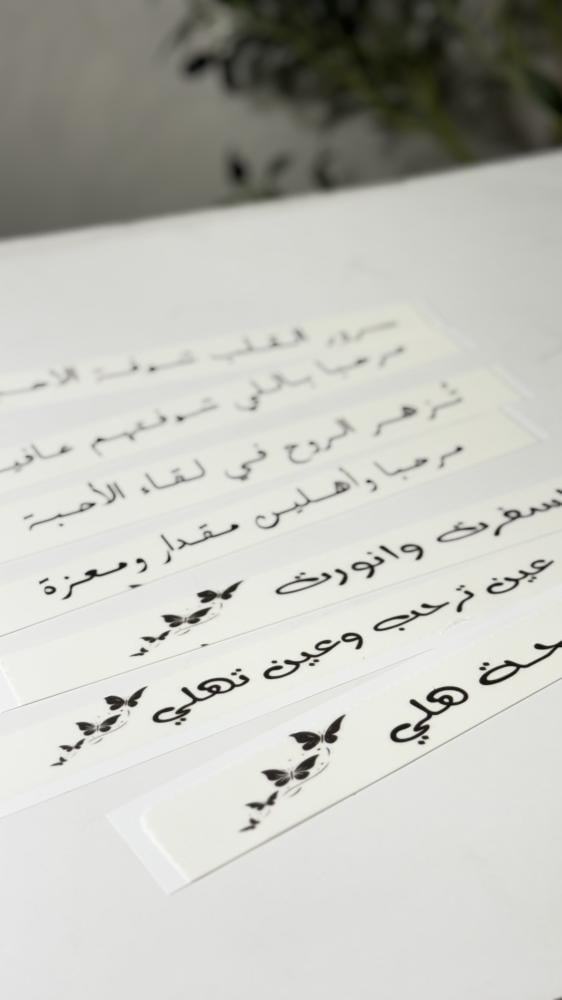 سرور القلب شوفة
مرحبا باللي شوفتهم
تزهر الروح في لقاء الأحبة
مرحبا وأهلين مقدار ومعزة
اسفرت وانورت
عين ترحب وعين تهلي
هلي